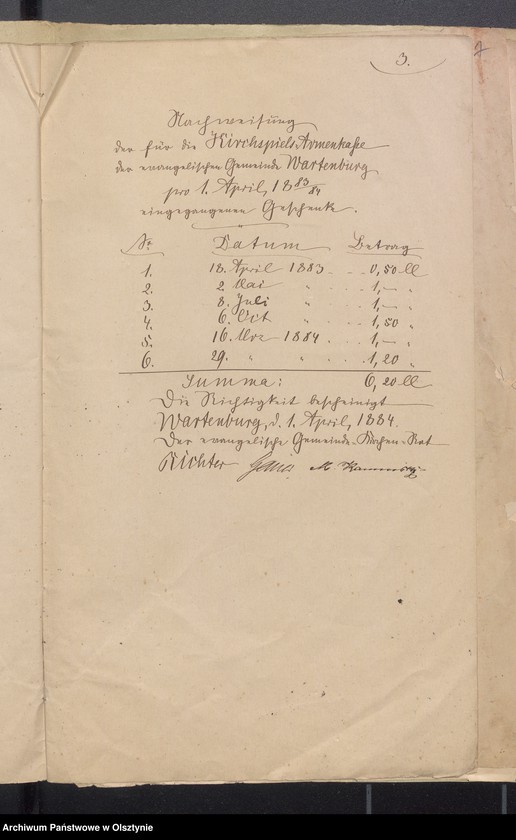 3.
Nachweisung
der für die Kirchspiels-Armenkasse
der evangelischen Gemeinde Wartenburg
pro 1. April 1883/84
eingegangenen Geschenke.
Nr. Datum Betrag
1. 18. April 1883 . . 0,50 M
2. 2. Mai " . . . 1,— "
3. 8. Juli " . . . 1,— "
4. 6. Oct " . . . 1,50 "
5. 16. 1884 . . . 1,— "
6. 29. " " . . . 1,20 "
Summa: 6,20 M
Die Richtigkeit bescheinigt
Wartenburg, d. 1. April, 1884.
Der evangelische Gemeinde-Kirchen-Rat
Richter
Archiwum Państwowe w Olsztynie